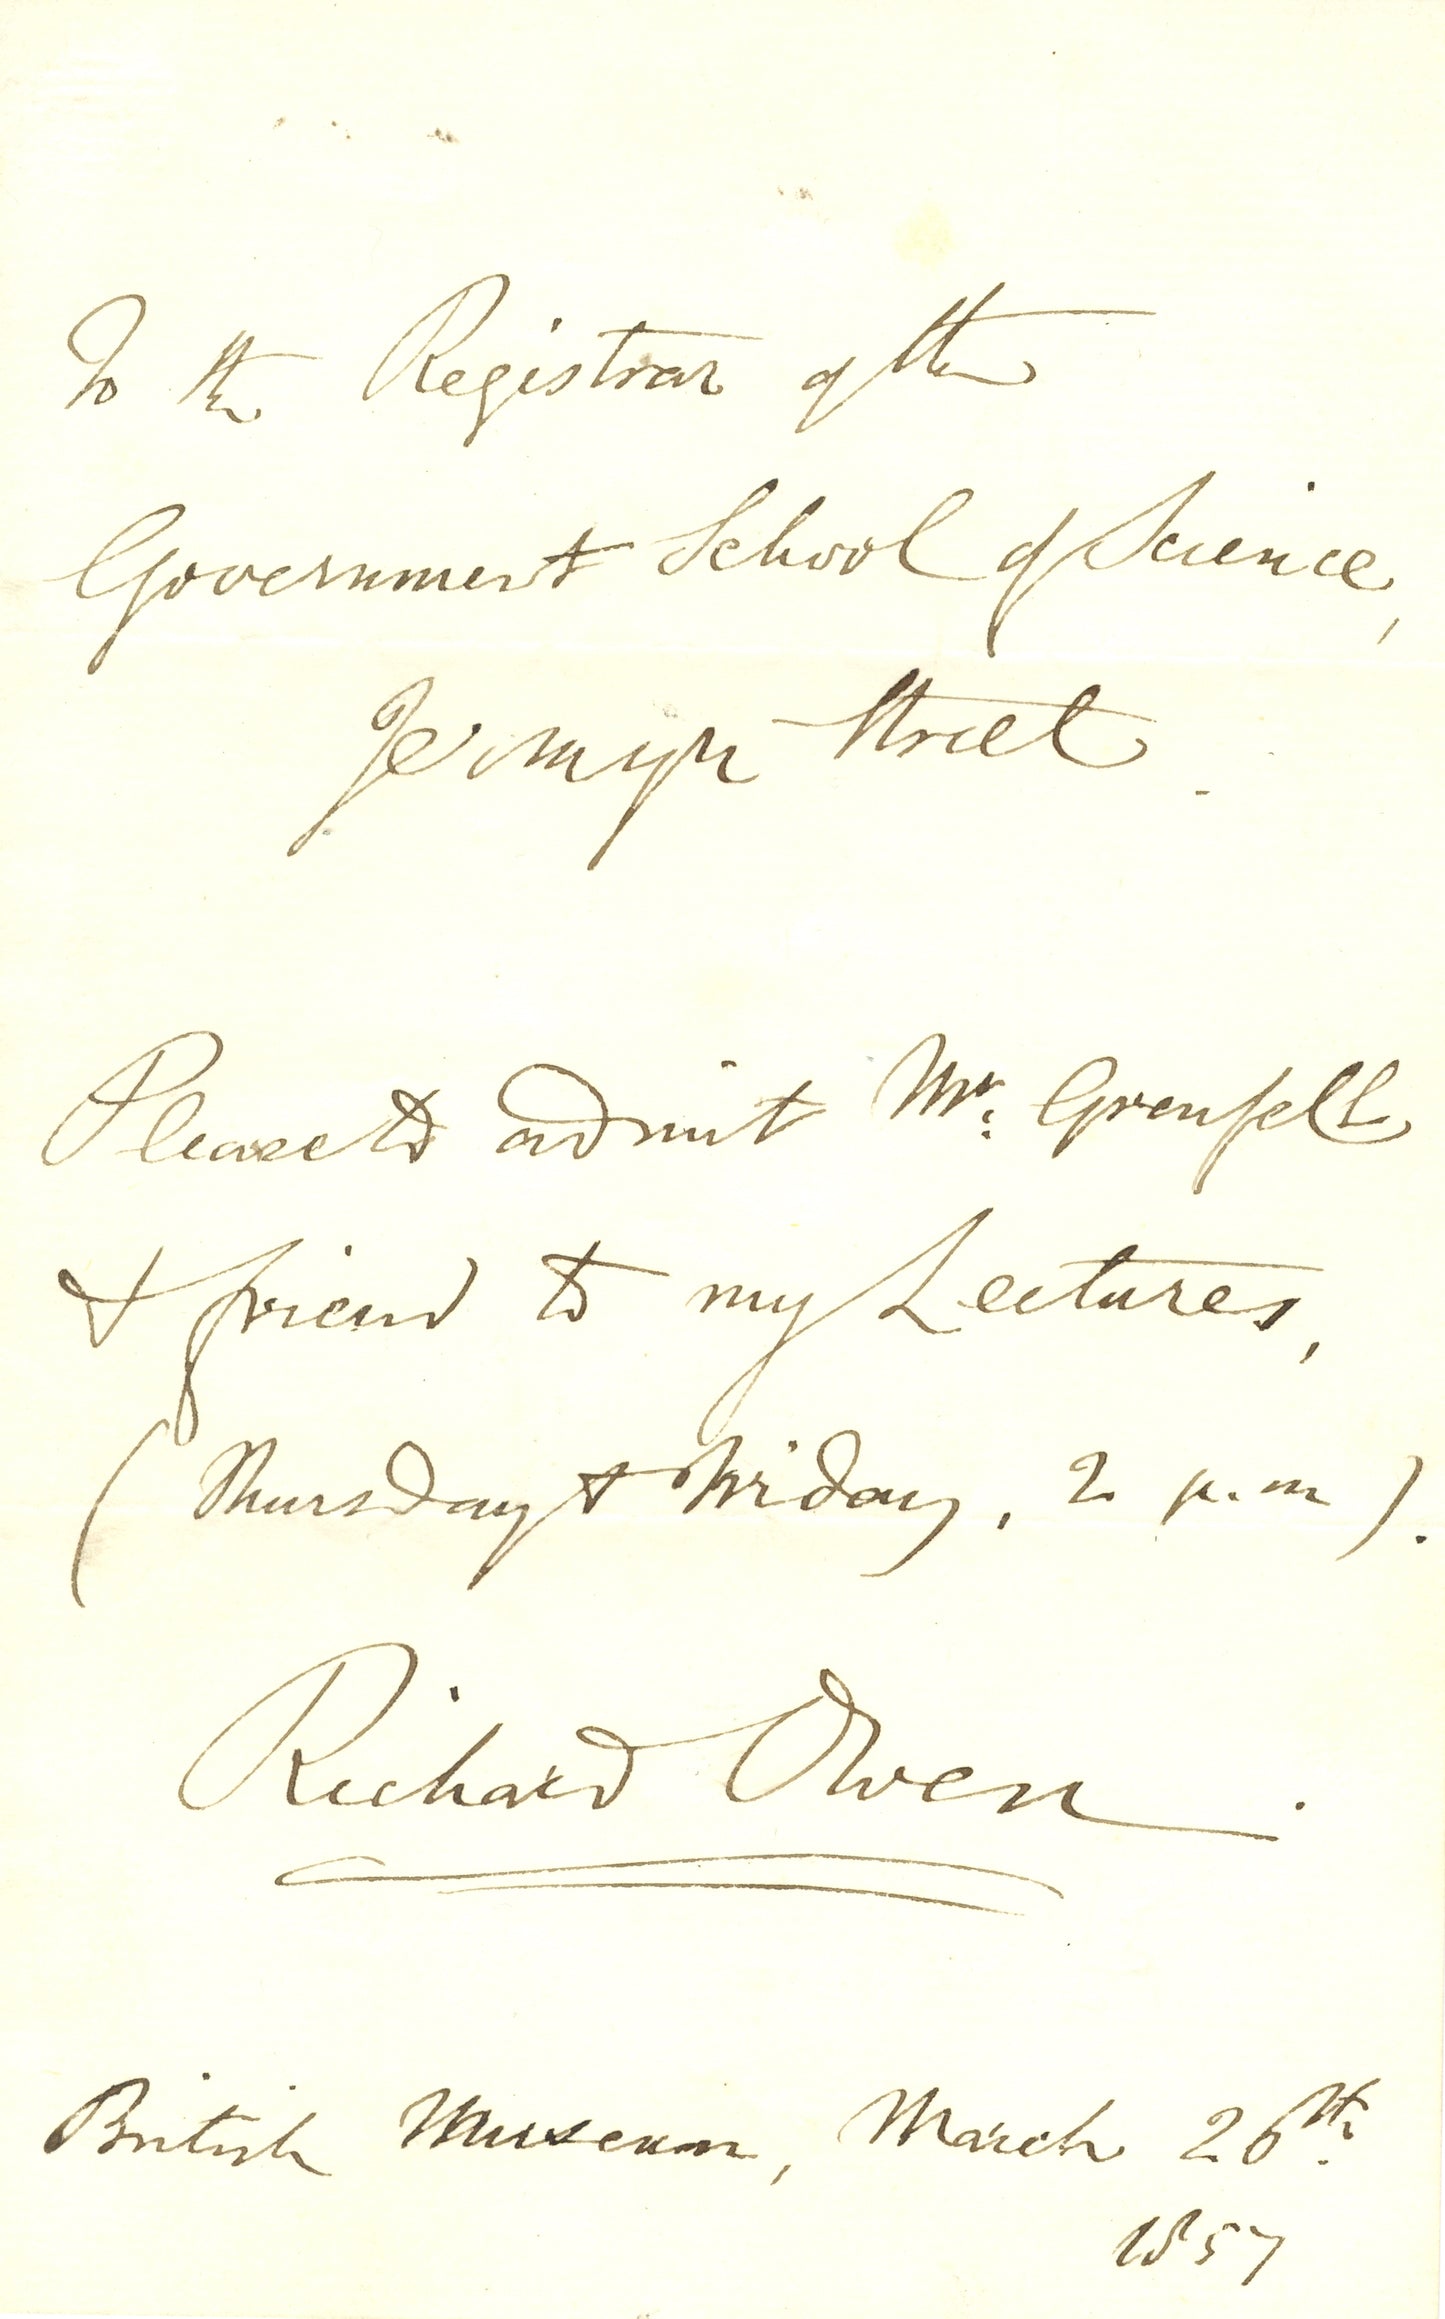 To the Registrar of the
Government School of Science,
Jermyn Street.
Please to admit Mr. Grenfell
& friend to my Lectures,
(Thursday & Friday, 2 p.m).
Richard Owen.
British Museum, March 26th.
1857